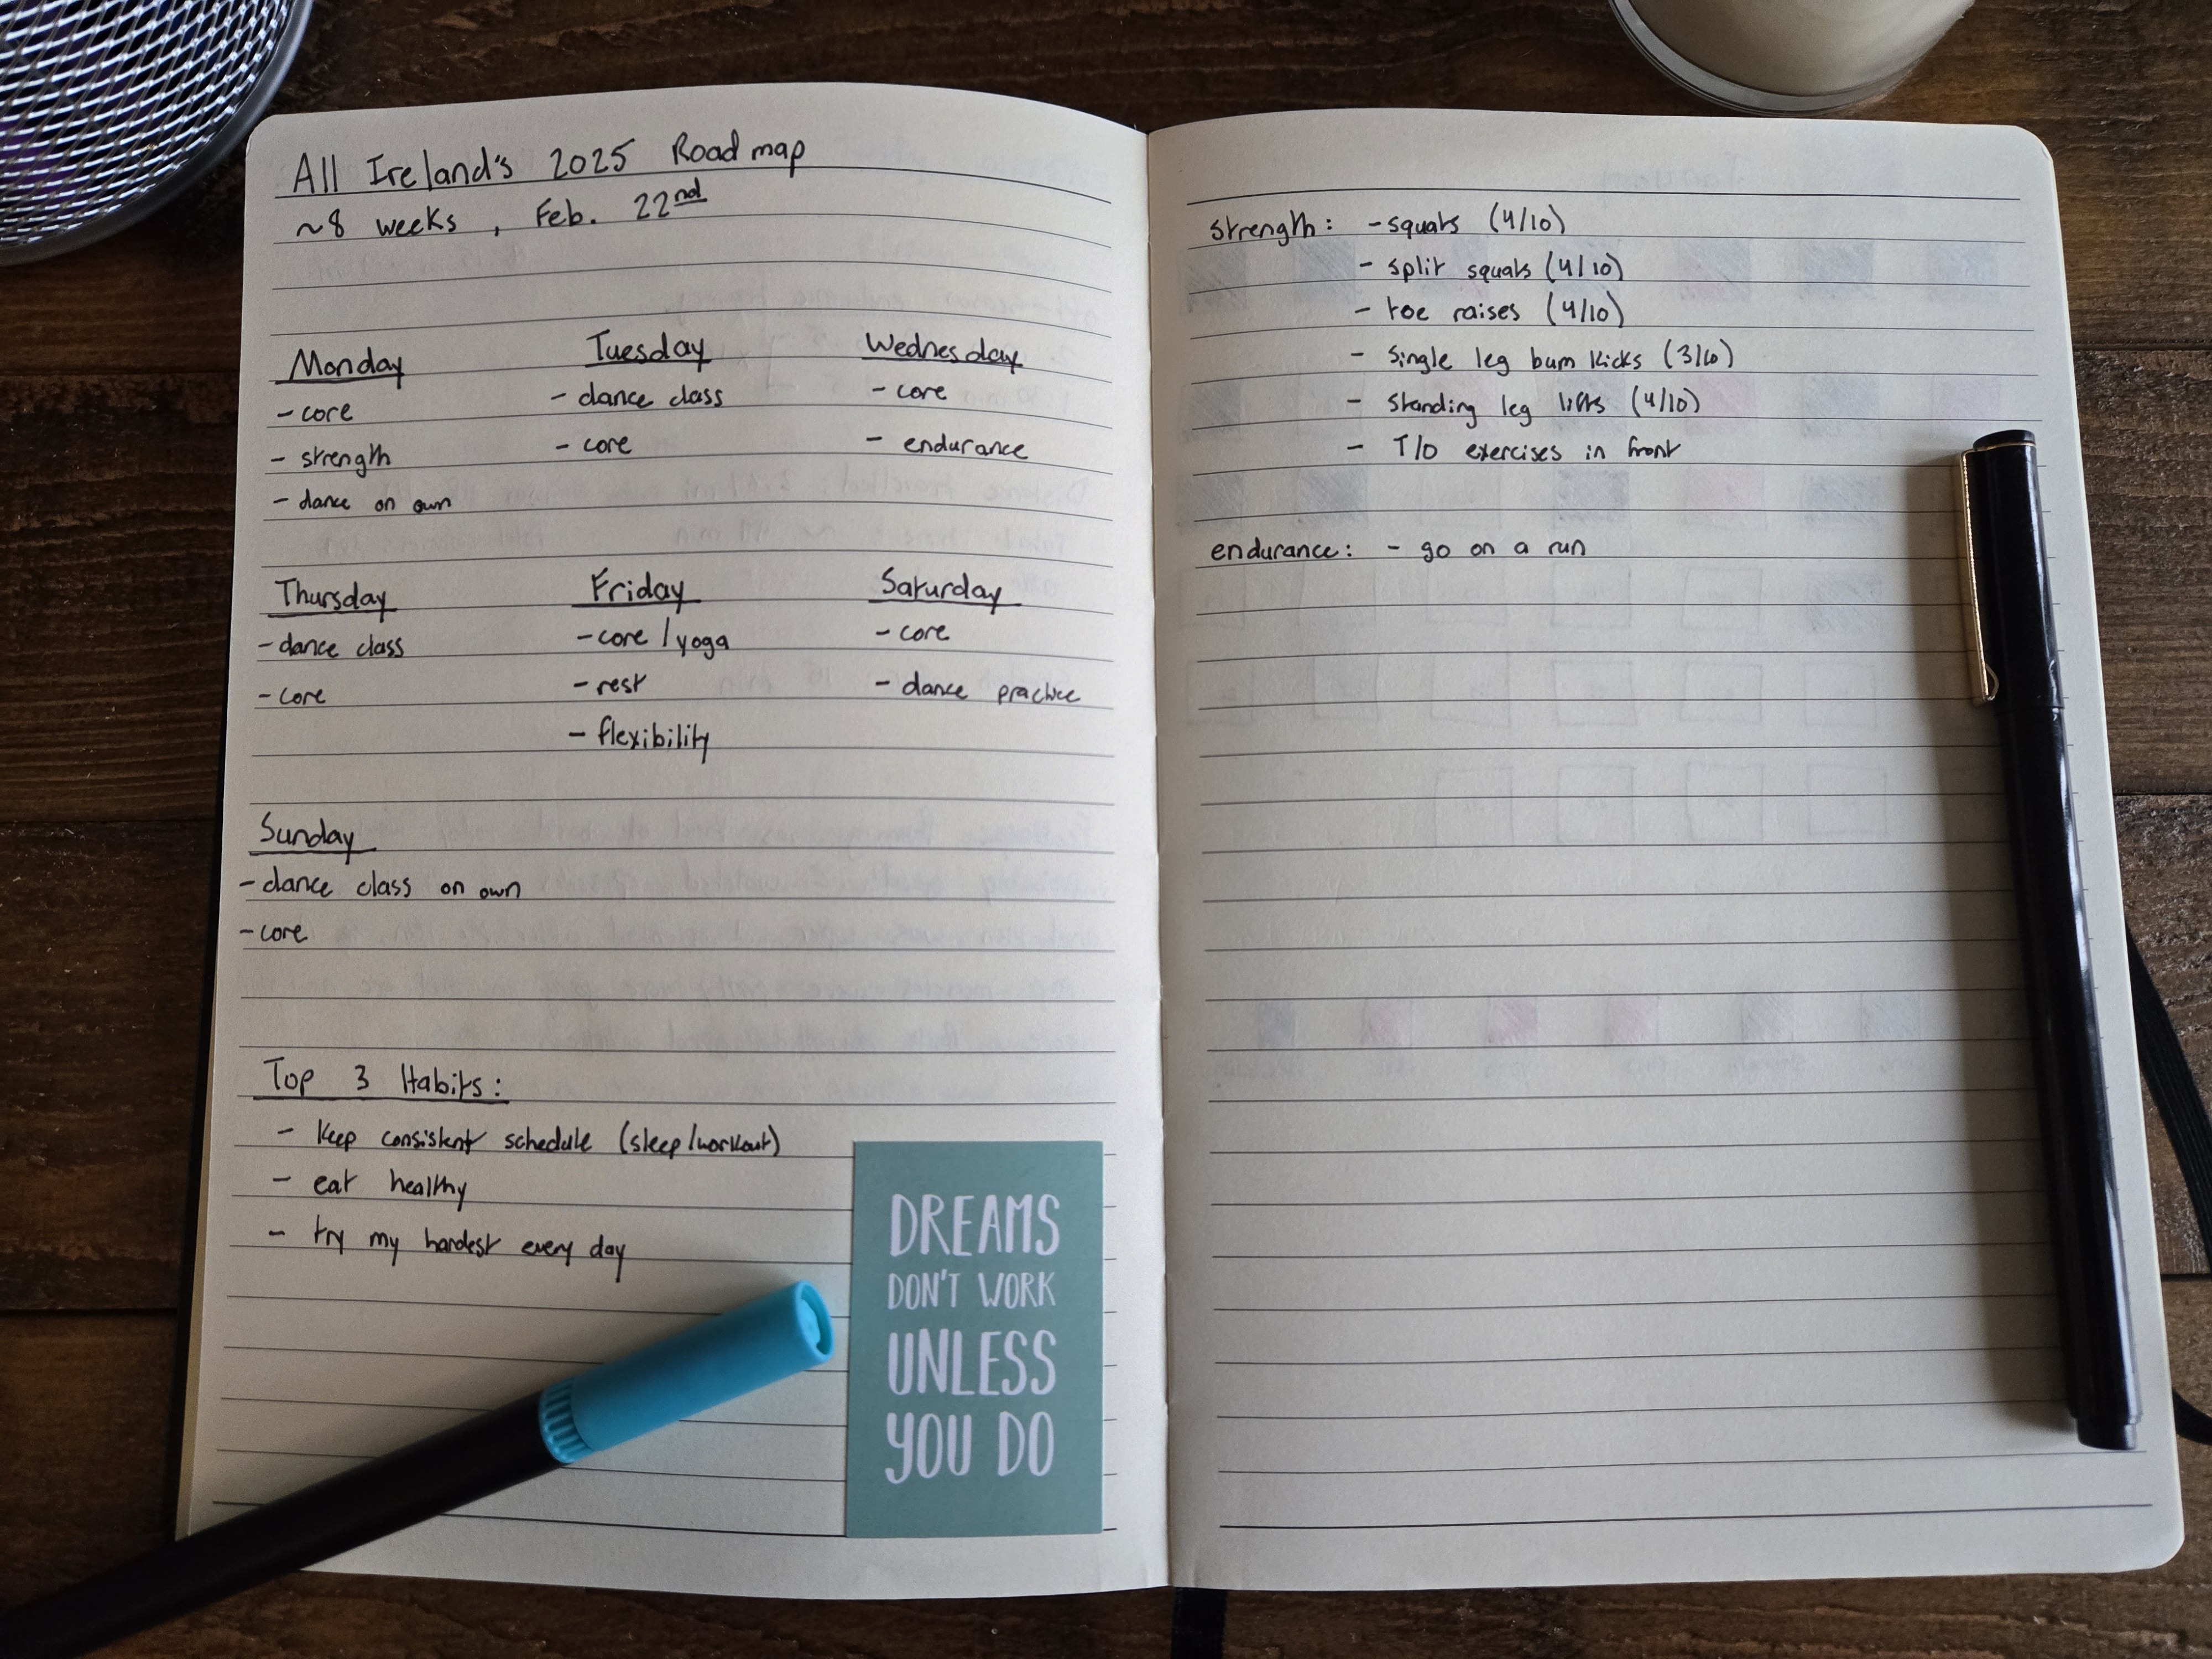 All Ireland's 2025 Roadmap
~8 weeks, Feb. 22nd
Monday
- core
- strength
- dance on own
Tuesday
- dance class
- core
Wednesday
- core
- endurance
Thursday
- dance class
- core
Friday
- core / yoga
- rest
- flexibility
Saturday
- core
- dance practice
Sunday
- dance class on own
- core
Top 3 Habits:
- Keep consistent schedule (sleep/workout)
- eat healthy
- try my hardest every day
DREAMS
DON'T WORK
UNLESS
YOU DO
strength: - squats (4/10)
- split squats (4/10)
- toe raises (4/10)
- Single leg bum kicks (3/10)
- Standing leg lifts (4/10)
- T/O exercises in front
endurance: - go on a run